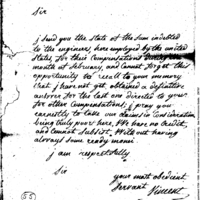 Sir
I send you the State of the Sum indebted
to the engineers, here employed by the united
States, for their Compensations
month of february, and Cannot forget this
opportunity to recall to your memory
that I have not yet obtained a definitive
answer for the last one directed to you
for other Compensations; I pray you
earnestly to take our claims in Consideration
being truly poor here, We have no Credit,
and Cannot Subsist, Without having
always Some ready money
I am respectfully
Sir
your most obedient
Servant Vincent
55